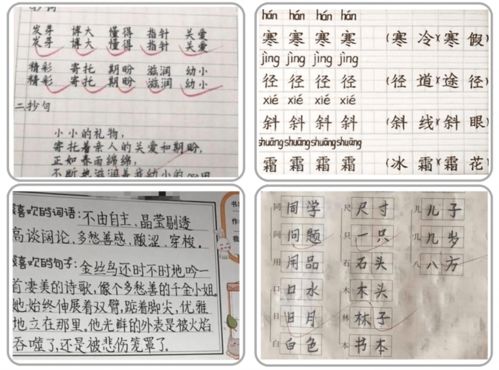 抄词
发芽 博大 懂得 指针 关爱
发芽 博大 懂得 指针 关爱
精彩 寄托 期盼 滋润 幼小
精彩 寄托 期盼 滋润 幼小
二、抄句
小小的礼物，
寄托着亲人的关爱和期盼，
正如春雨绵绵，
不断地滋润着幼小的心田
hán hán hán hán
寒 寒 寒 寒 (寒 冷 寒 假)
jìng jìng jìng jìng
径 径 径 径 (径 道 途 径)
xié xié xié xié
斜 斜 斜 斜 (斜 线 斜 眼)
shuāng shuāng shuāng shuāng
霜 霜 霜 霜 (冰 霜 霜 花)
喜欢的词语：不由自主、晶莹剔透
高谈阔论、多愁善感、穿梭。
喜欢的句子：金丝鸟还时不时地吟一
首凄美的诗歌，像个多愁善的千金小姐，
她始终伸展着双臂，踮着脚尖，优雅
地立在那里，他光鲜的外表是被火焰
吞噬了，还是被悲伤笼罩了。
同 同学 尺 尺寸 儿 儿子
问 问题 只 一只 几 几岁
用 用品 石 石头 八 八方
口 口水 木 木头
日 日月 林 林子
白 白色 本 书本